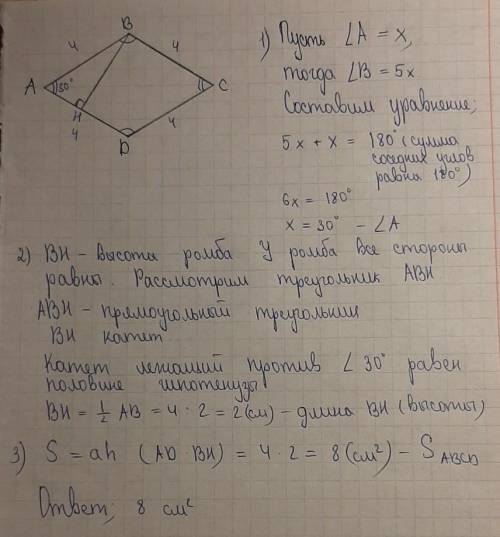 B
4
4
A
30°
C
H
4
4
D
1) Пусть ∠A = x,
тогда ∠B = 5x
Составим уравнение;
5x + x = 180° (сумма
соседних углов
равна 180°)
6x = 180°
x = 30° - ∠A
2) BH - Высота ромба У ромба все стороны
равны. Рассмотрим треугольник ABH
ABH - прямоугольный треугольник
BH катет
Катет лежащий против ∠ 30° равен
половине гипотенузы
BH = 1/2 AB = 4 · 2 = 2 (см) - длина BH (высоты)
3) S = ah (AD · BH) = 4 · 2 = 8 (см²) - S ABCD
Ответ; 8 см²